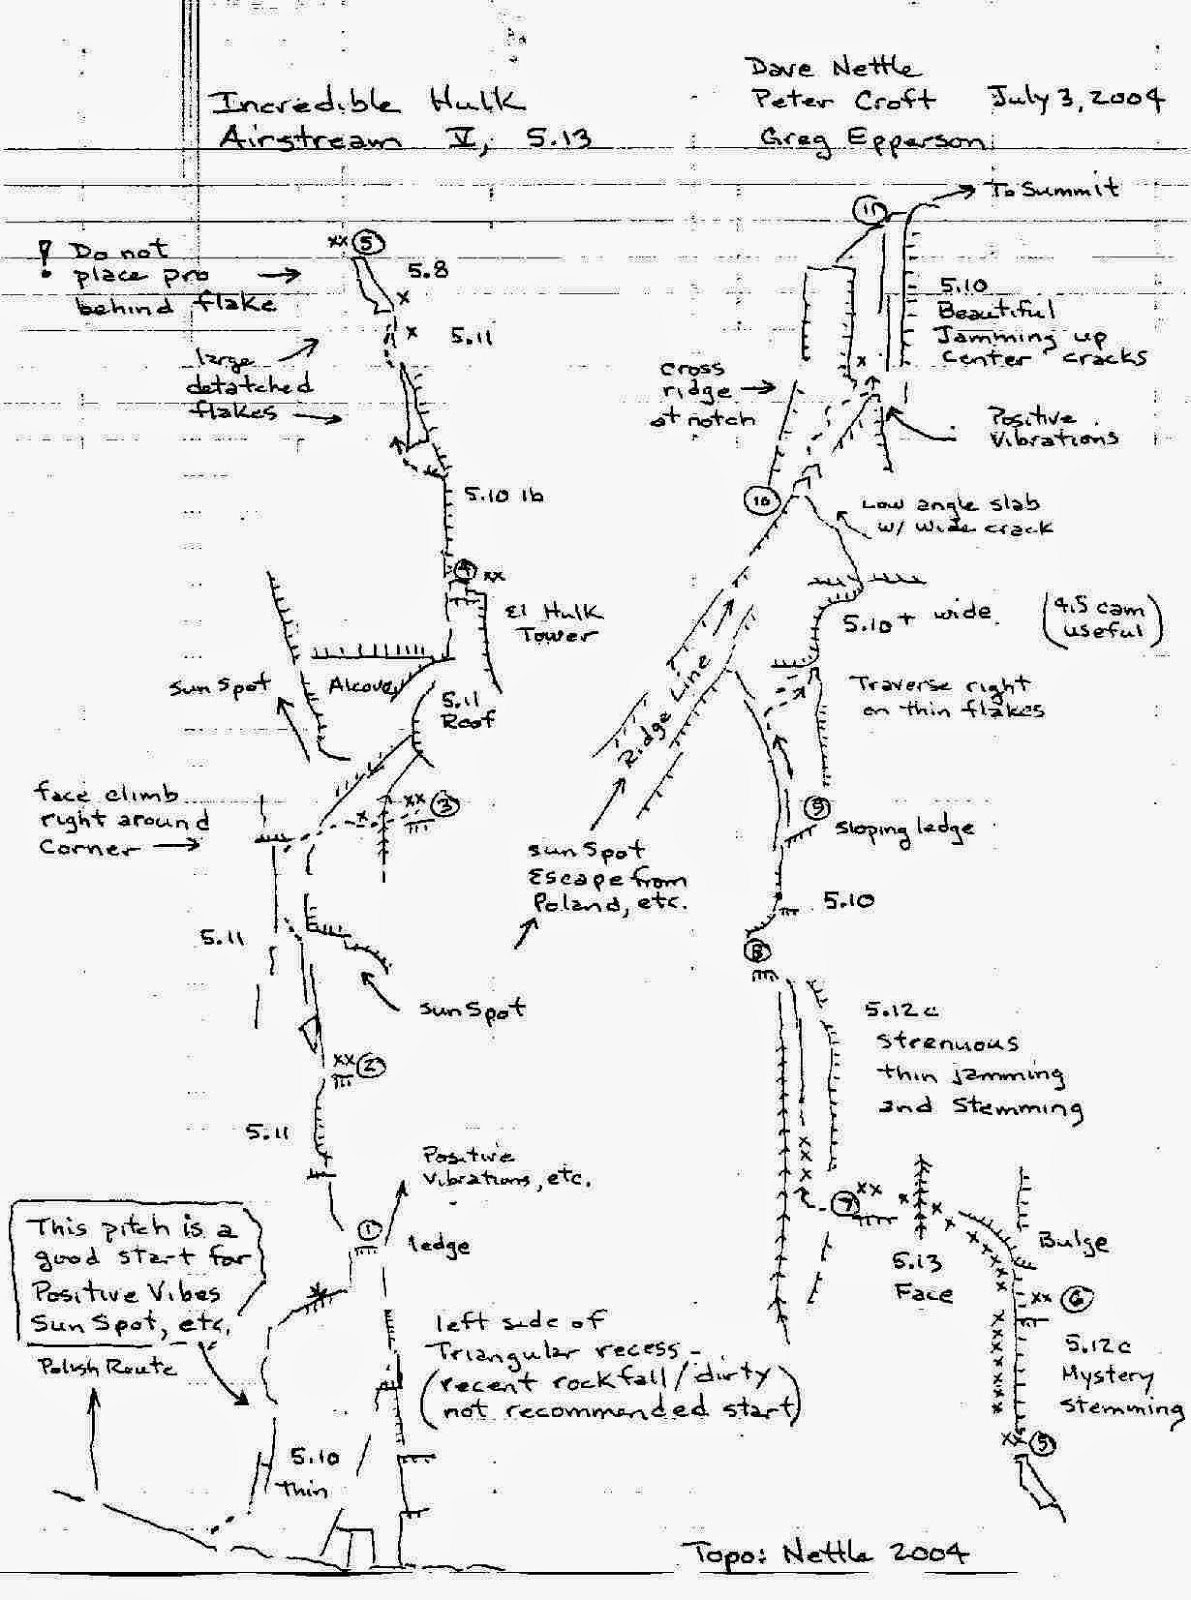 Incredible Hulk
Airstream V, 5.13
Dave Nettle
Peter Croft July 3, 2004
Greg Epperson
! Do not
place pro
behind flake
xx 5
5.8
5.11
large
detatched
flakes
5.10 lb
4 xx
El Hulk
Tower
Sun Spot
Alcove
5.11
Roof
face climb
right around
Corner
xx 3
5.11
Sun Spot
xx 2
5.11
Positive
Vibrations, etc.
1
ledge
This pitch is a
good start for
Positive Vibes
Sun Spot, etc.
Polish Route
5.10
Thin
left side of
Triangular recess -
(recent rockfall/dirty
not recommended start)
11
To Summit
5.10
Beautiful
Jamming up
Center cracks
cross
ridge
at notch
Positive
Vibrations
10
Low angle slab
w/ wide crack
5.10+ wide
(4.5 cam
useful)
Traverse right
on thin flakes
Ridge Line
9
Sloping ledge
Sun Spot
Escape from
Poland, etc.
5.10
8
5.12c
Strenuous
thin jamming
and Stemming
7 xx
5.13
Face
Bulge
xx 6
5.12c
Mystery
Stemming
xx 5
Topo: Nettle 2004